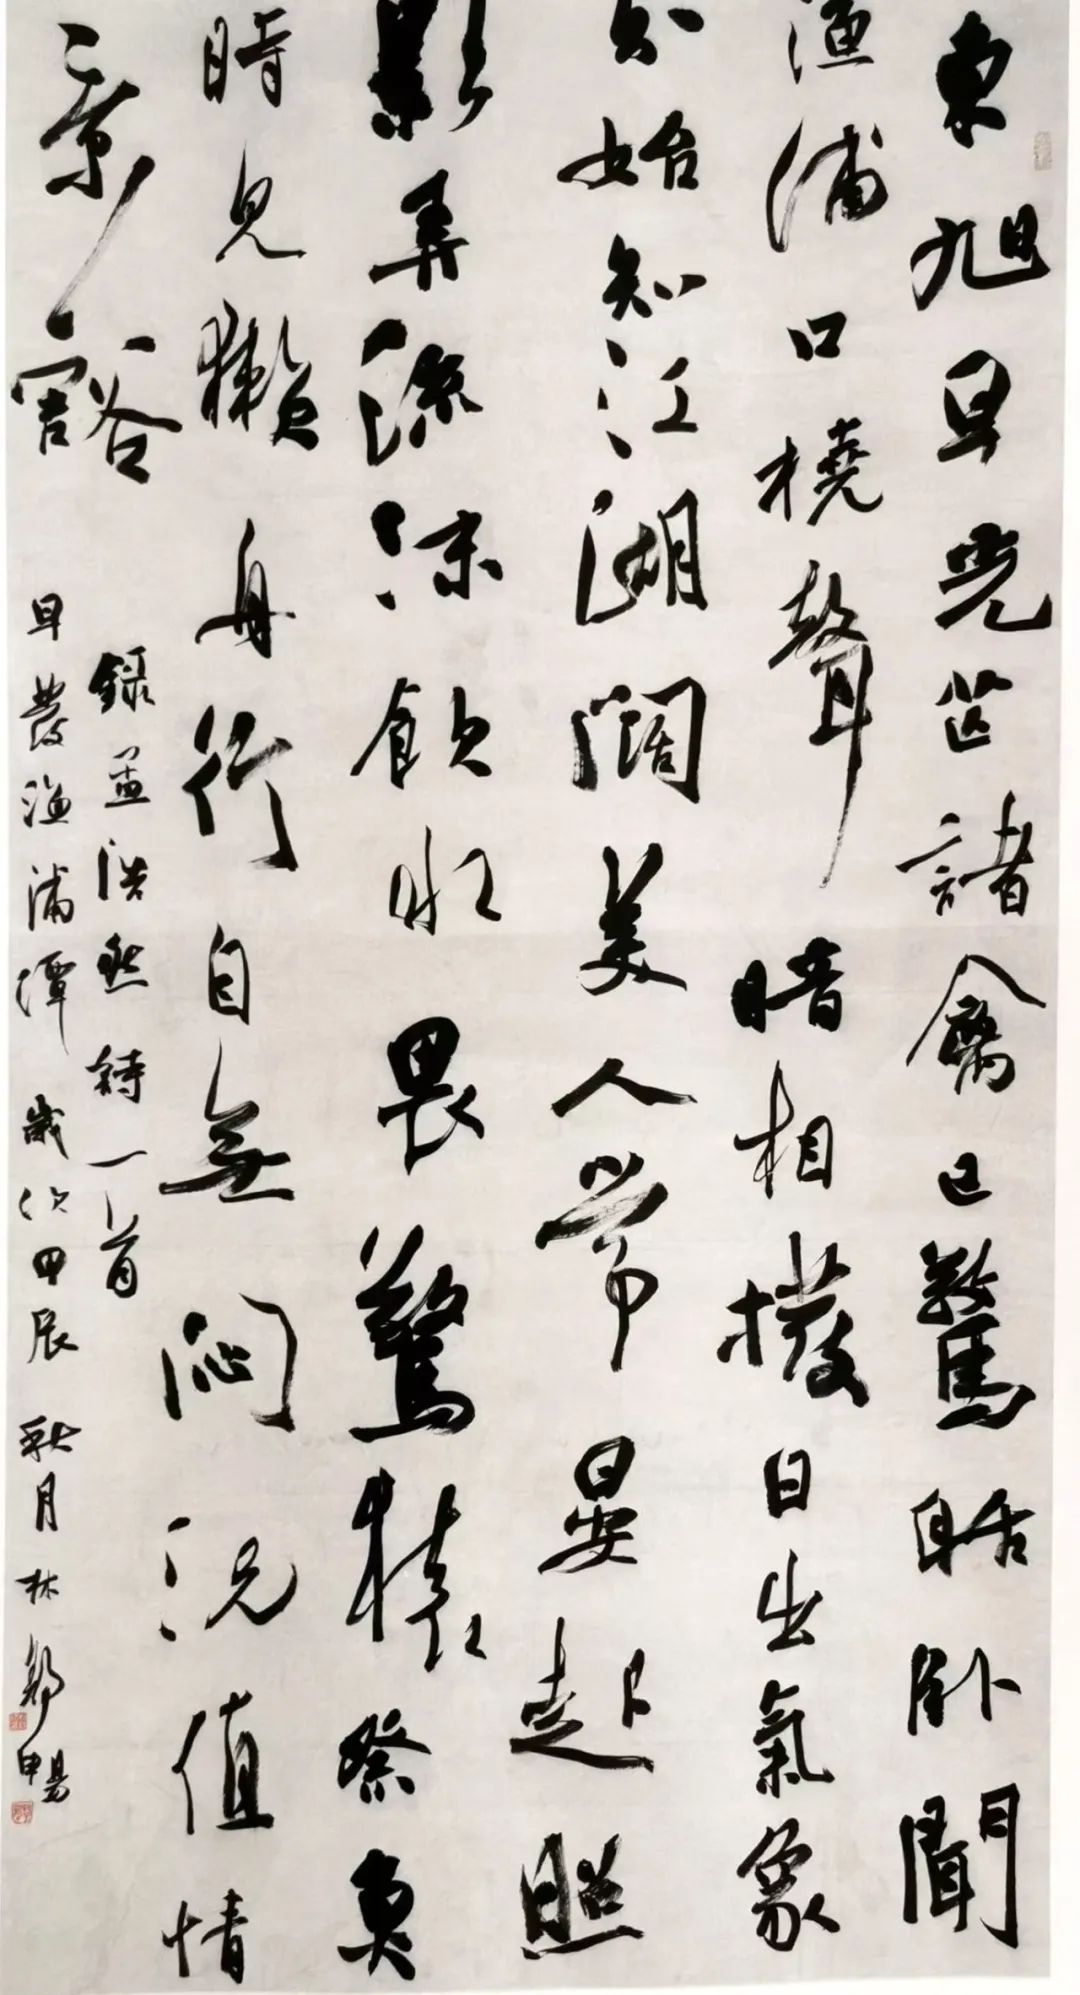 東旭早光芒諸禽已驚聒卧聞
漁浦口橈聲暗相撥日出氣象
分始知江湖闊美人常晏起照
影弄流沫飲水畏驚猿祭魚
時見獺舟行自無悶況值情
景豁
錄孟浩然詩一首
早發漁浦潭 歲次甲辰秋月林鄭暢